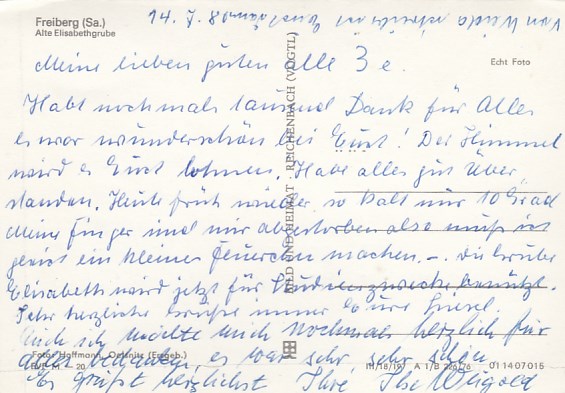 Freiberg (Sa.)
Alte Elisabethgrube
14. 7. 80
Echt Foto
Meine lieben guten alle 3 e.
Habt nochmals tausend Dank für Alles
es war wunderschön bei Euch! Der Himmel
wird es Euch lohnen. Habe alles gut über
standen. Heute früh wieder so kalt nur 10 Grad
Meine Finger sind mir abgestorben also muß ich
gleich ein kleines Feuerchen machen. –. Die Grube
Elisabeth wird jetzt für Studienzwecke benützt.
Sehr herzliche Grüße immer Eure
Auch ich möchte mich nochmals herzlich für
alles bedanken, es war sehr, sehr schön
Es grüßt herzlichst Ihre Ilse Weigold
BILD UND HEIMAT · REICHENBACH (VOGTL)
Foto: Hoffmann, Oelsnitz (Erzgeb.)
III/18/197 A 1/B 226/76 01 14 07 015